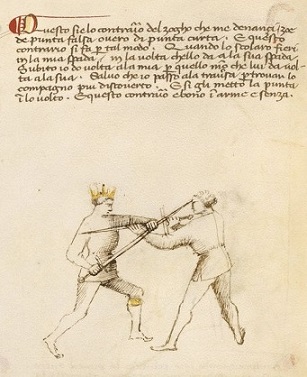 Questo si e lo contrario del zogho che me denanci zoe
de punta falsa overo di punta curta. E questo
contrario si fa p tal modo. Quando lo scolaro fieri
in la mia spada, in la volta chello da a la sua spada
Subito io do volta ala mia p quello mo che lui da vol
ta ala sua. Salvo che io passo ala traversa p trovar lo
compagno piu discoverto. E si gli metto la punta
in lo volto. E questo contrario e bono in arme e senza.